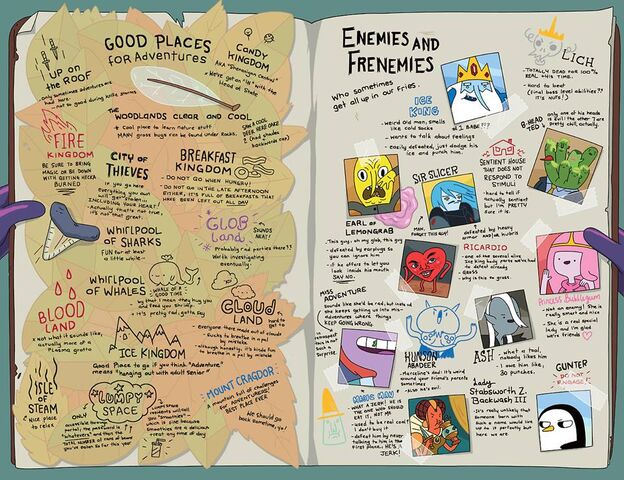 GOOD PLACES
for Adventures
UP ON
the ROOF
Only sometimes adventures are
had here.
CANDY
KINGDOM
AKA "Shenanigan Central"
We've got an "in" with the
Head of State
THE
WOODLANDS CLEAR AND COOL
Cool place to learn nature stuff
MANY grass buys can be found under Rocks.
FIRE
KINGDOM
BE SURE TO BRING
MAGIC OR BE DOWN
WITH GETTING HECKA
BURNED
CITY OF
THIEVES
If you go here
everything you own
will get stolen.
INCLUDING YOUR HEART
- actually that's not true,
it's not that great.
BREAKFAST
KINGDOM
- DO NOT GO WHEN HUNGRY!
- DO NOT GO IN THE LATE AFTERNOON
EITHER, IT'S FULL OF BREAKFASTS THAT
HAVE BEEN LEFT OUT ALL DAY
WHIRLPOOL
OF SHARKS
FUN for at least
a little while
GLOB
Land
SOUNDS
NEAT!
Probably rad parties there??
Worth investigating
eventually.
WHIRLPOOL
OF WHALES
WHALE OF A
GOOD TIME
by that I mean they hug you
and feed you shrimp.
It's pretty rad, gotta say
BLOOD
LAND
Not what it sounds like,
actually more of a
Plasma grotto
CLOUD
LAND
hard to
get to
- Everyone there made out of clouds
- sucks to breathe in a pal
- although honestly it's kinda fun
to breathe in a pal by mistake
ICE KINGDOM
Good Place to go if you think "Adventure"
means "hanging out with adult Senior"
ISLE
OF
STEAM
Nice place
to relax
LUMPY
SPACE
ONLY
accessible through a
portal; the password is
"whatevers" and then the
lump space
residents will call
you "Smoothie"
which is fine because
Smoothies are a delicious
treat any time of day
MOUNT CRAGDOR
mountain full of challenges
ADVENTURES!
BEST PLACE EVER
We should go
back sometime, yo!
ENEMIES AND
FRENEMIES
Who sometimes
get all up in our fries.
LICH
- TOTALLY DEAD FOR 100%
REAL THIS TIME.
- Hard to beat
(final boss level abilities??
IT'S NUTS!)
ICE
KING
- weird old man, smells
like cold socks
- wants to talk about feelings
- easily defeated, just dodge his
ice and punch him.
#1 BABE???
only one of his heads
is evil the other 7 are
pretty chill, actually.
SENTIENT HOUSE
THAT DOES NOT
RESPOND TO
STIMULI
- hard to tell if
actually sentient
but I'm PRETTY
sure it is.
EARL OF
LEMONGRAB
- This guy, oh my glob, this guy
- defeated by earplugs so
you can ignore him
- if he offers to let you
look inside his mouth
SAY NO.
SIR SLICER
MAN,
FORGET THIS GUY!
- defeated by heavy
armor
RICARDIO
- one of the normal alive
Ice King body parts we've had
to defeat already
- gross
- why is this so gross
Princess Bubblegum
- Not an enemy! She's
really smart and nice
She is a rad special
lady and I'm glad
we're friends
MISS
ADVENTURE
Sounds like she'd be rad, but instead
she keeps getting us into mis-
adventures where things
KEEP GOING WRONG
HUNSON
ABADEER
- Marceline's dad: It's weird
around your friend's parents
sometimes
- Also he's evil
ASH
- what a tool,
nobody likes him
- I owe him like,
30 punches.
MAGIC MAN
- WHAT A JERK! HE IS
THE ONE WHO SHOULD
EAT IT, NOT ME
- used to be real cool?
I don't buy it
- defeat him by never
talking to him in the
first place. HE'S A
JERK!
Lady
Stabsworth Z.
Backwash III
- It's really unlucky that
someone born with
Such a name would live
up to it perfectly but
here we are
GUNTER
- DO NOT
ENGAGE!